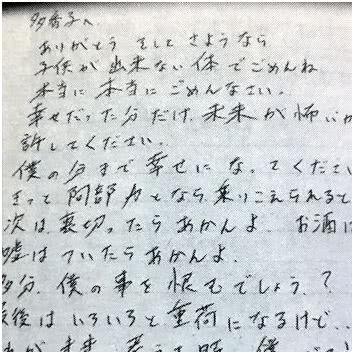 多香子へ
ありがとう そして さようなら
子供が出来ない体でごめんね
本当に本当にごめんなさい。
幸せだった分だけ、未来が怖いか
許してください。
僕の分まで幸せになってください
きっと 阿部力となら乗りこえられると
次は裏切ったらあかんよ お酒に
嘘はついたらあかんよ。
多分、僕の事を恨むでしょう?
最後はいろいろと重荷になるけど、
未来